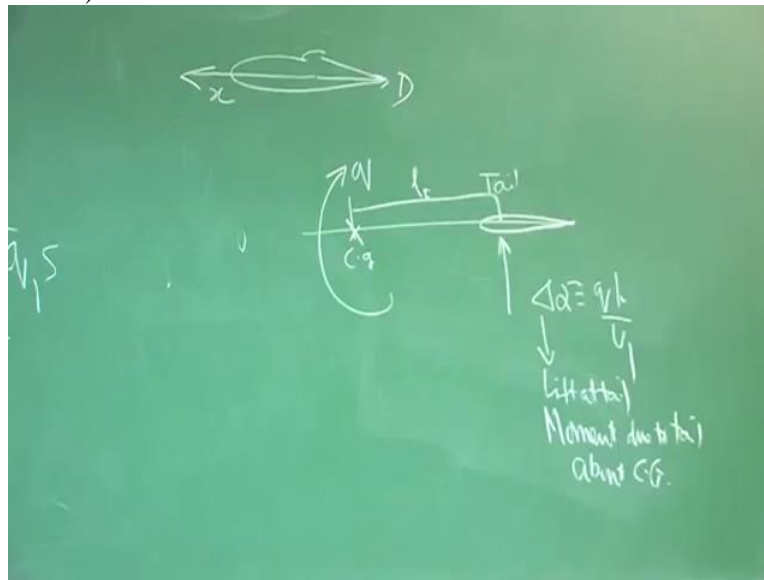 x D
q
l_t Tail
c.g
q̄₁S
Δα = ql_t
U₁
Lift at tail
Moment due to tail
about C.G.